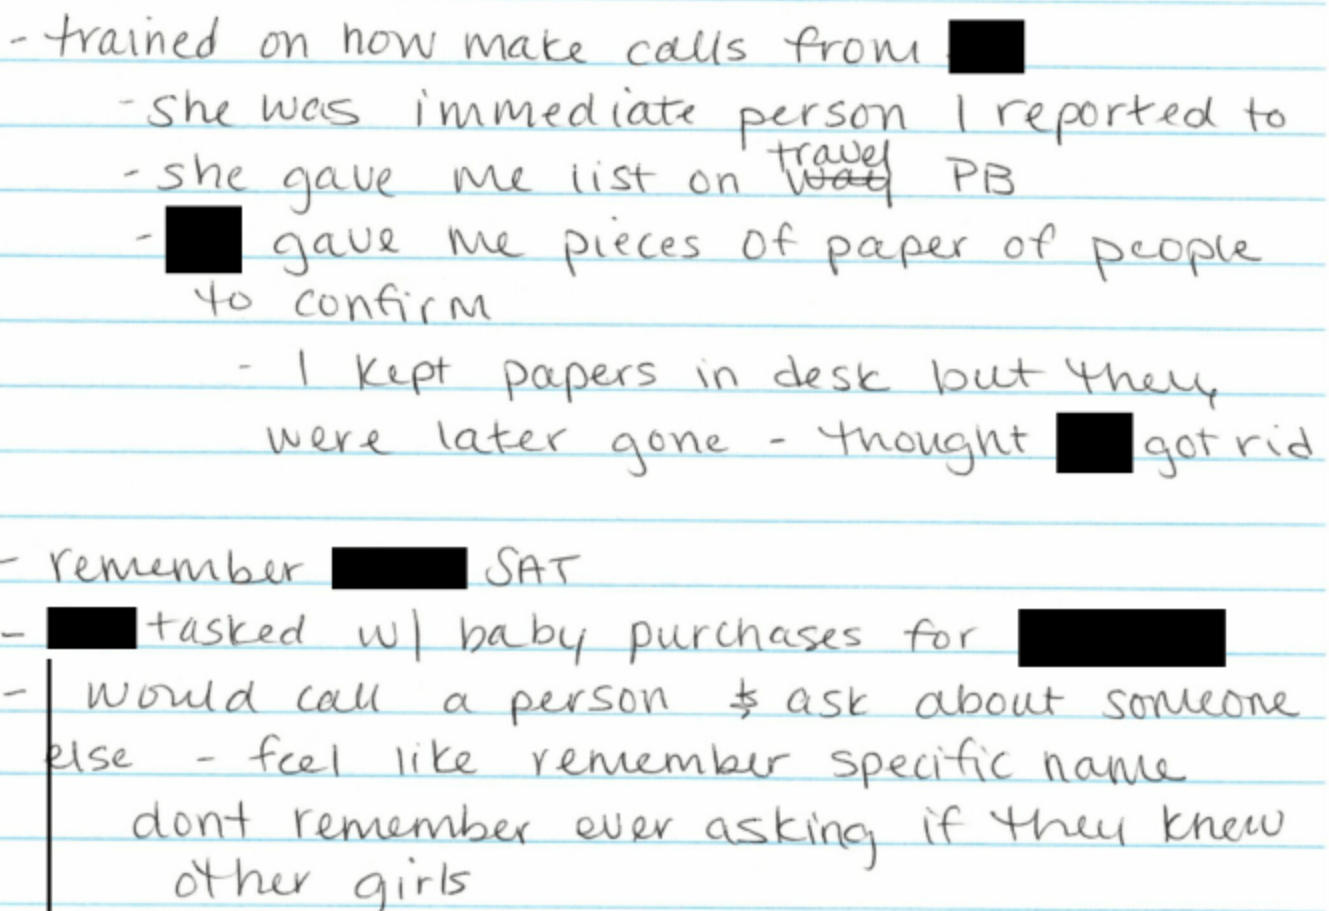 - trained on how make calls from
- she was immediate person I reported to
- she gave me list on travel PB
- gave me pieces of paper of people
to confirm
- I kept papers in desk but they
were later gone - thought got rid
- remember SAT
- tasked w/ baby purchases for
- would call a person & ask about someone
else - feel like remember specific name
dont remember ever asking if they knew
other girls